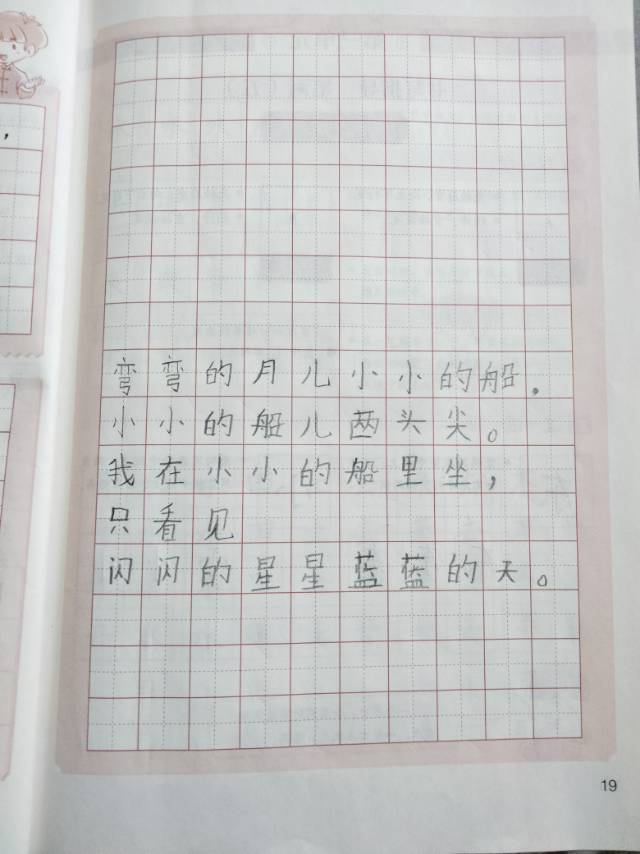 ，
弯弯的月儿小小的船.
小小的船儿两头尖。
我在小小的船里坐，
只看见
闪闪的星星蓝蓝的天。
19